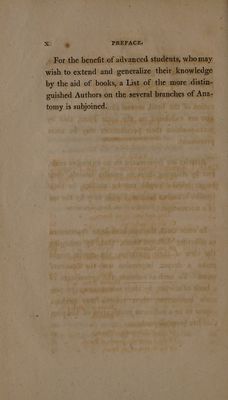 X. PREFACE.
For the benefit of advanced students, who may
wish to extend and generalize their knowledge
by the aid of books, a List of the more distin-
guished Authors on the several branches of Ana-
tomy is subjoined.